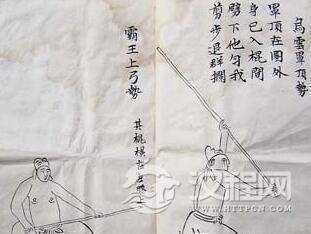 烏雲罩頂勢
罩頂在圈外
身已入棍間
劈下他勻我
剪步退群攔
霸王上弓勢
其棍橫
汉程网
WWW.HTTPCN.COM